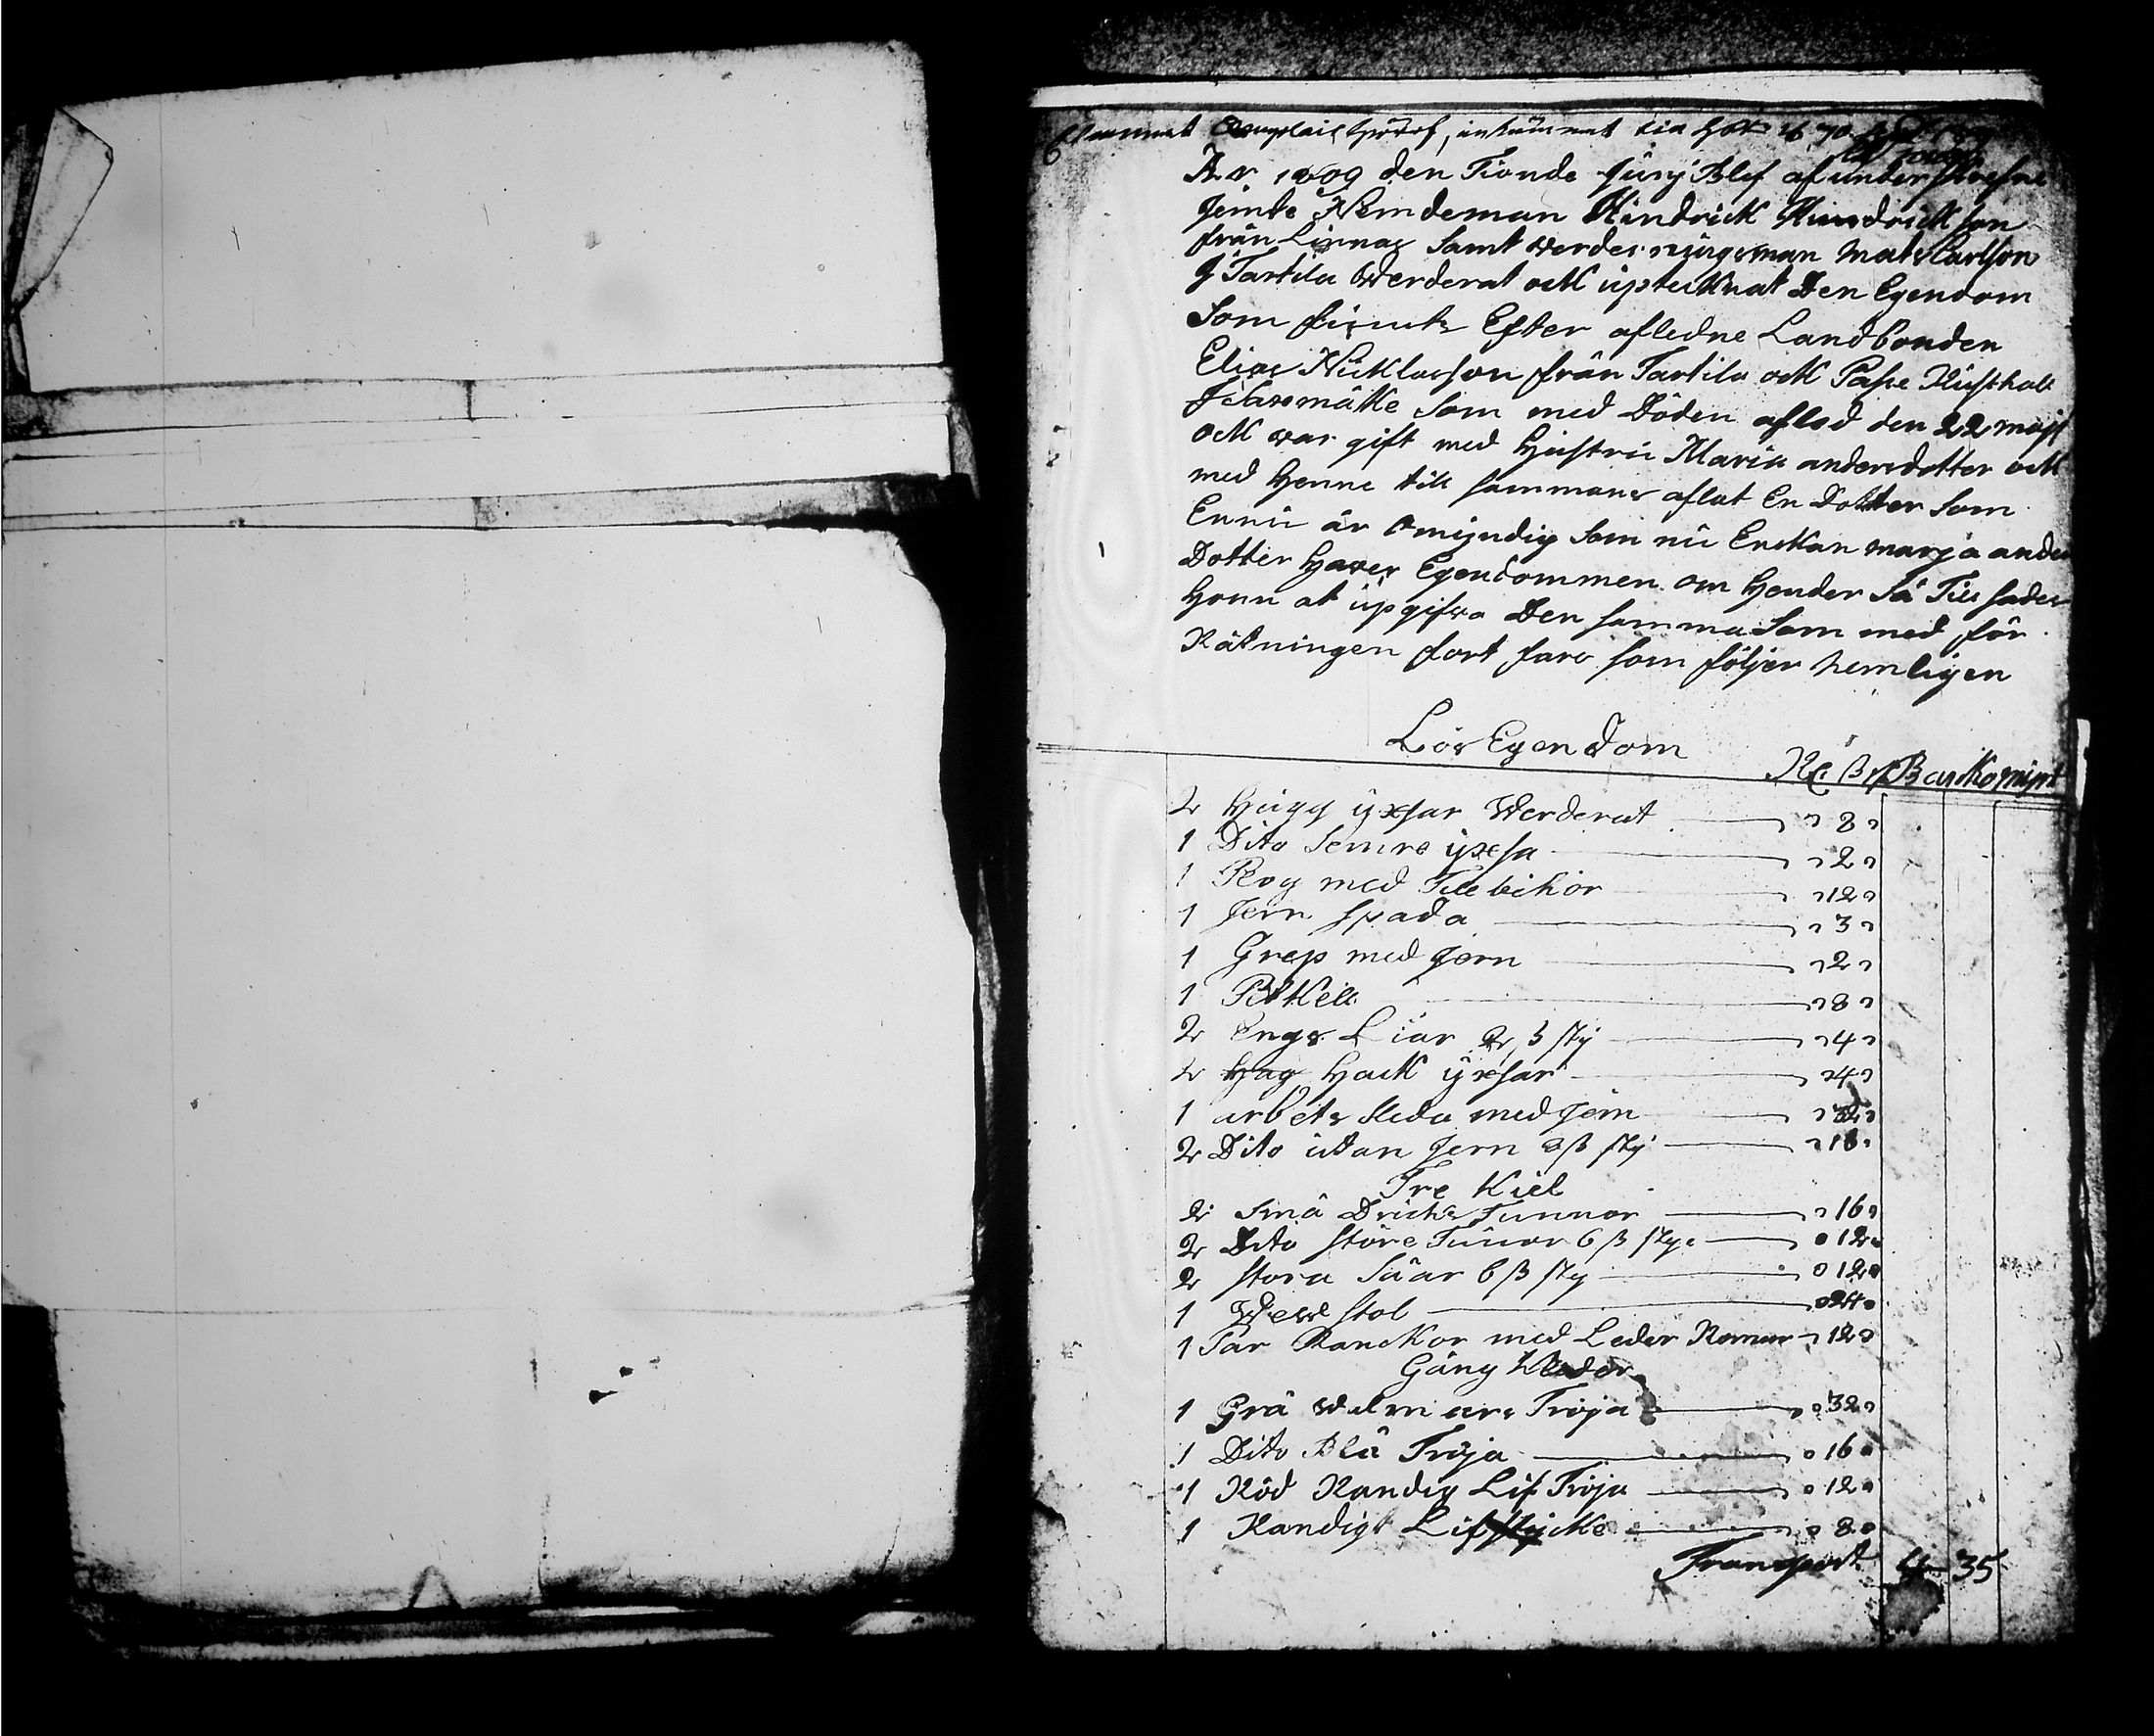 År 1809 den Tionde Junj Blef af underskrefne
Jemte Nemdeman Hindrick Hindrickson
från Linnas Samt Werderningsman Mats Carlson
J Tartila Werderat ock uptecknat Den Egendom
Som finnts Efter afledne Landbonden
Elias Nicklasson från Tartila ock Rusthåll
som med Döden afled den 22 maji
ock war gift med Hustru Maria andersdotter ock
med Henne till sammans aflat En Dotter Som
Ennu är omijndig Som nu Enckan marja anders
Dotter Haver Egendommen om Hender Så Tillsades
Honn at upgifva Den samma Som med för
Räkningen fort faro som följer nemligen
Lös Egendom
2 Hugg yxsar Werderat 8
1 Dito Semre yxsa 2
1 Plog med Tillbehör 12
1 Jern Spada 3
1 Grep med Jern 2
1 8
2 Engs Liar 2 ß sty 4
2 Hag Hack yxsar 4
1 arbets Sleda med Jern
2 Dito utan Jern ß sty
Tre Kiel
2 Små Dricks Tunnor 16
2 Dito Större Tunnor 6 ß sty 12
2 Stora Såar 6 ß sty 12
1 Wew Stol 24
1 Par med Leder Remar 12
Gång Kleder
1 Grå Walmars Tröja 32
1 Dito Blå Tröja 16
1 Röd Randig Lif Tröja 12
1 Randigt Lifstycke 8
Transport 4 35